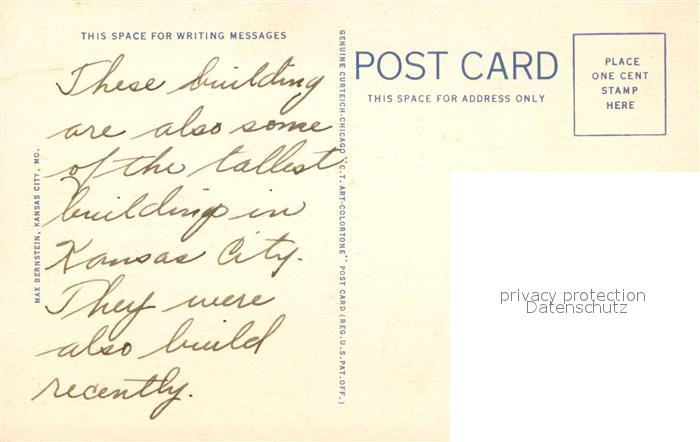 THIS SPACE FOR WRITING MESSAGES
These building
are also some
of the tallest
buildings in
Kansas City.
They were
also build
recently.
MAX BERNSTEIN, KANSAS CITY, MO.
GENUINE CURTEICH-CHICAGO "C.T. ART-COLORTONE" POST CARD (REG. U.S. PAT. OFF.)
POST CARD
THIS SPACE FOR ADDRESS ONLY
PLACE
ONE CENT
STAMP
HERE
privacy protection
Datenschutz